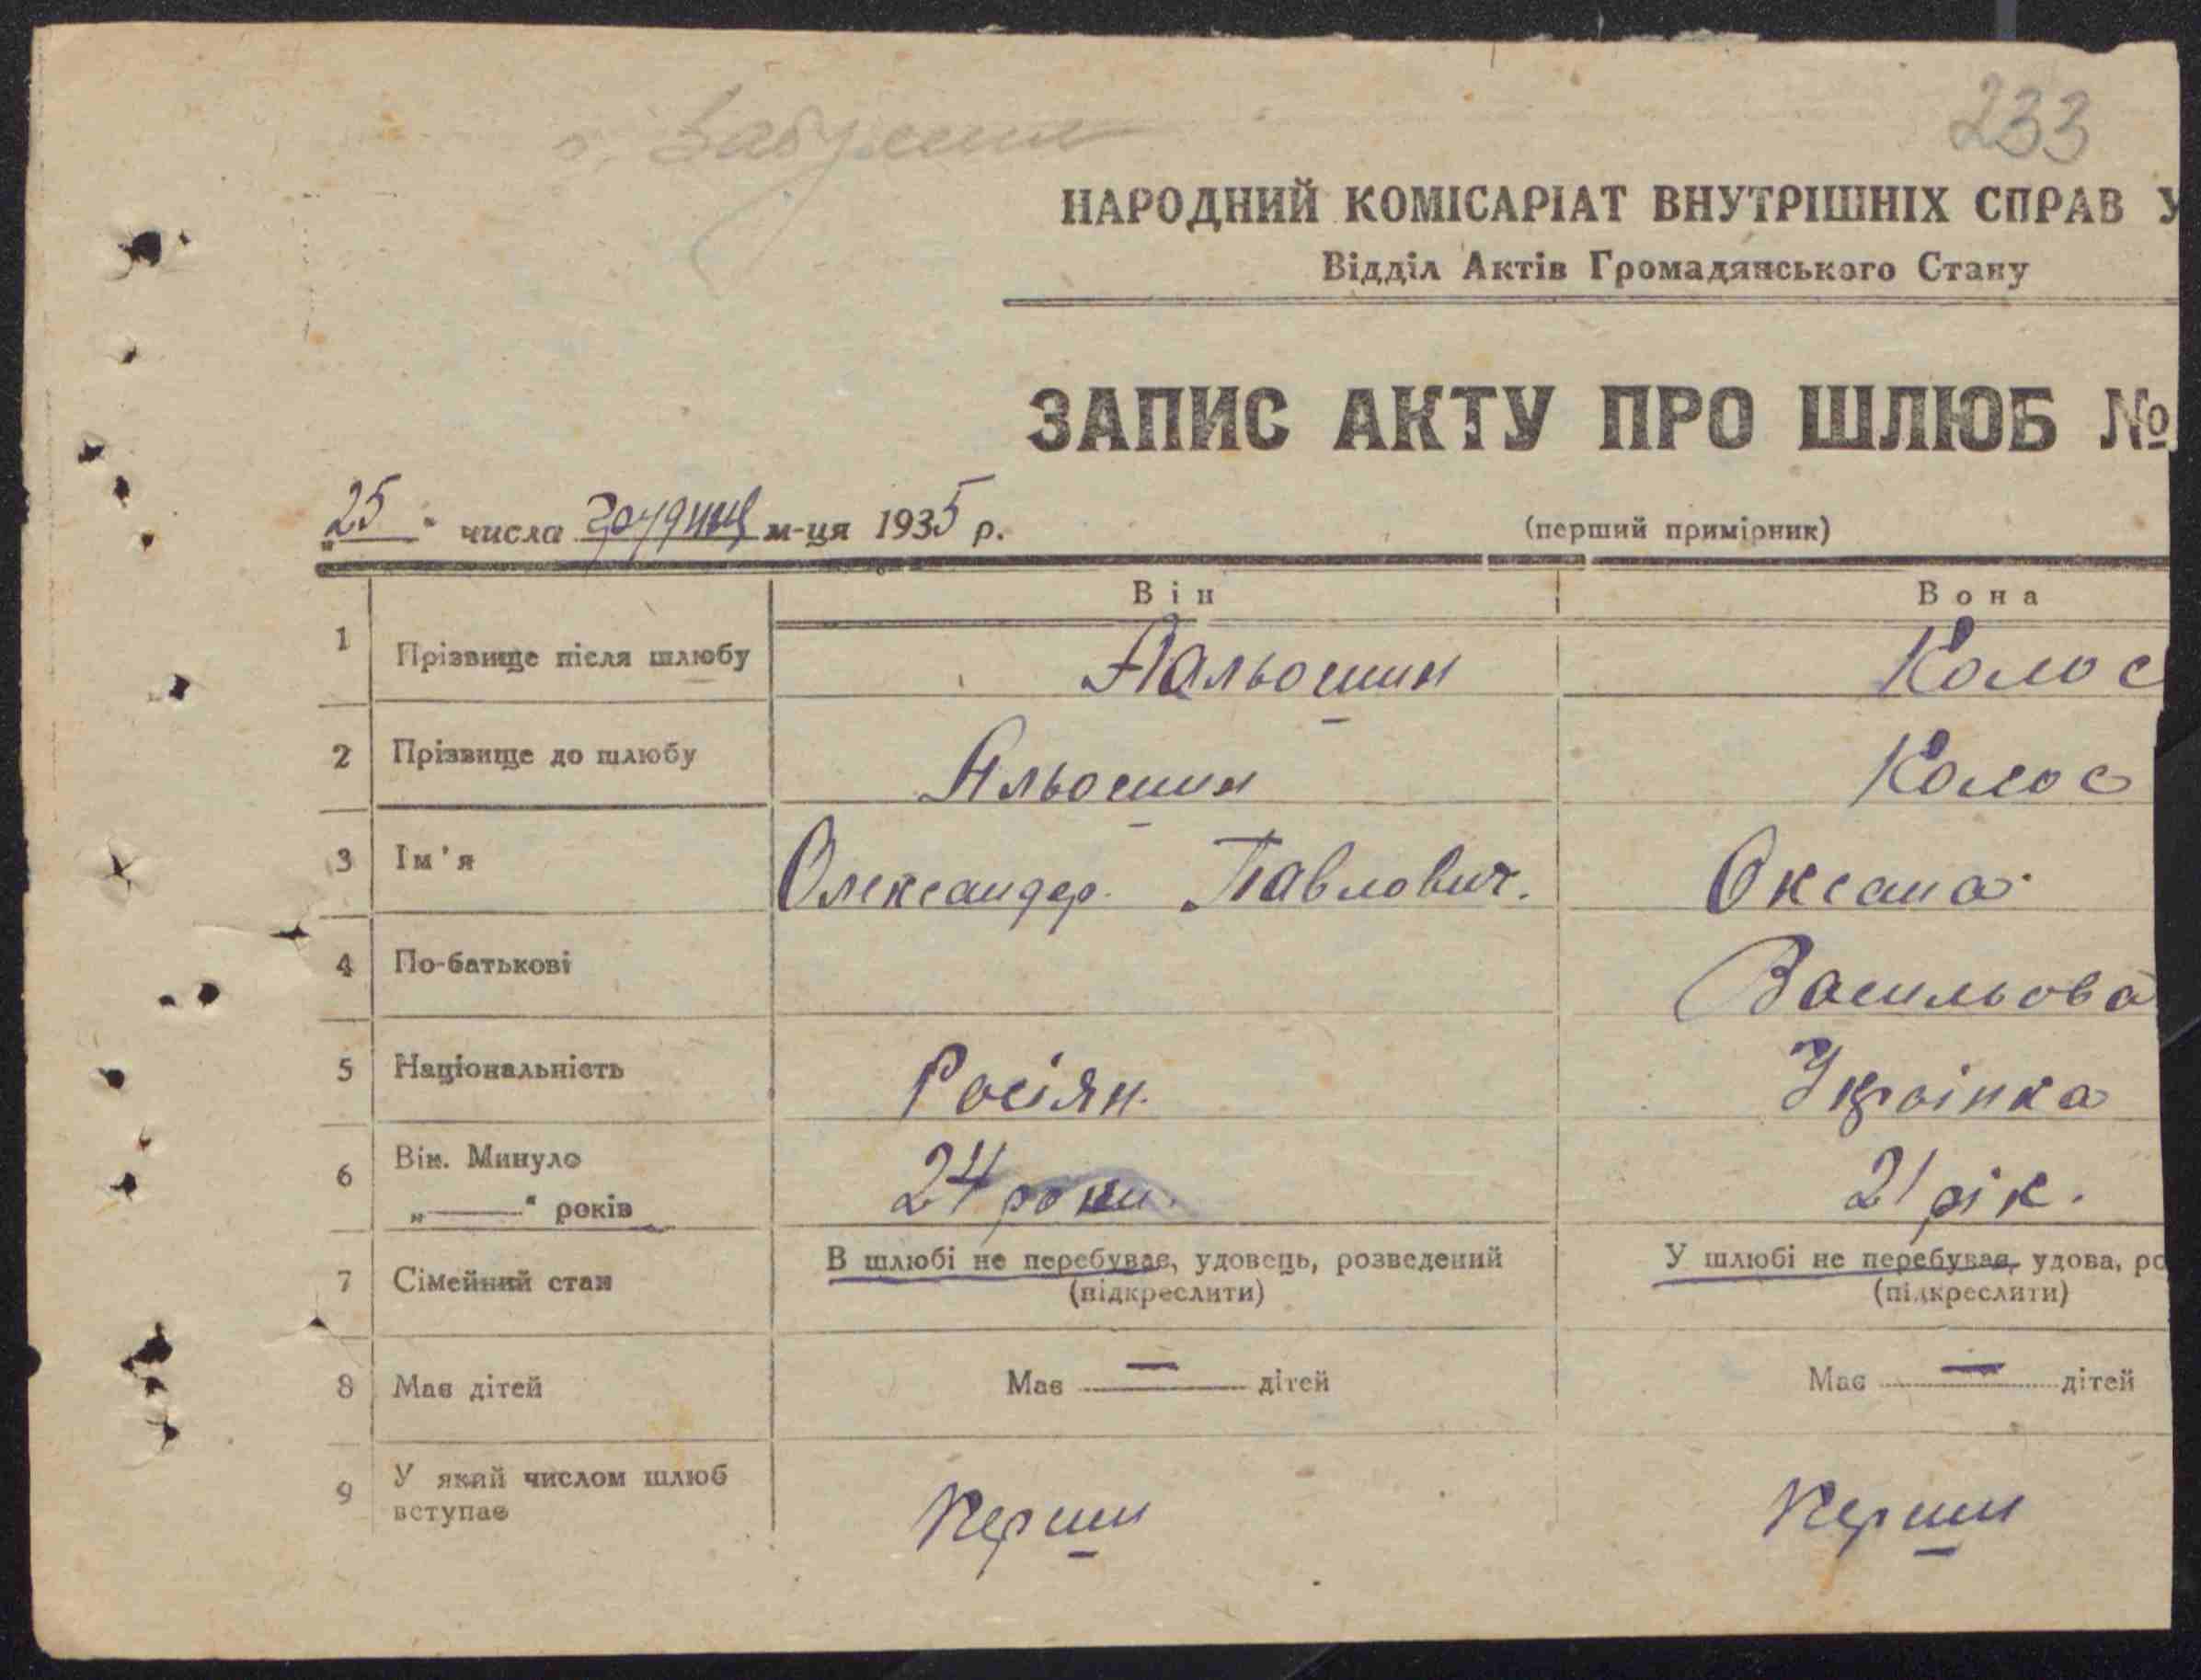 233
НАРОДНИЙ КОМІСАРІАТ ВНУТРІШНІХ СПРАВ У
Відділ Актів Громадянського Стану
ЗАПИС АКТУ ПРО ШЛЮБ №
„25“ числа грудня м-ця 1935 р.
(перший примірник)
Він Вона
1 Прізвище після шлюбу Альошин Колос
2 Прізвище до шлюбу Альошин Колос
3 Ім'я Олександер Павлович. Оксана
4 По-батькові Васильова
5 Національність Росіян. Українка
6 Вік. Минуло
„—“ років 24 роки. 21 рік.
7 Сімейний стан В шлюбі не перебуває, удовець, розведений У шлюбі не перебуває, удова, ро
(підкреслити) (підкреслити)
8 Має дітей Має — дітей Має — дітей
9 У який числом шлюб
вступає Перши Перши